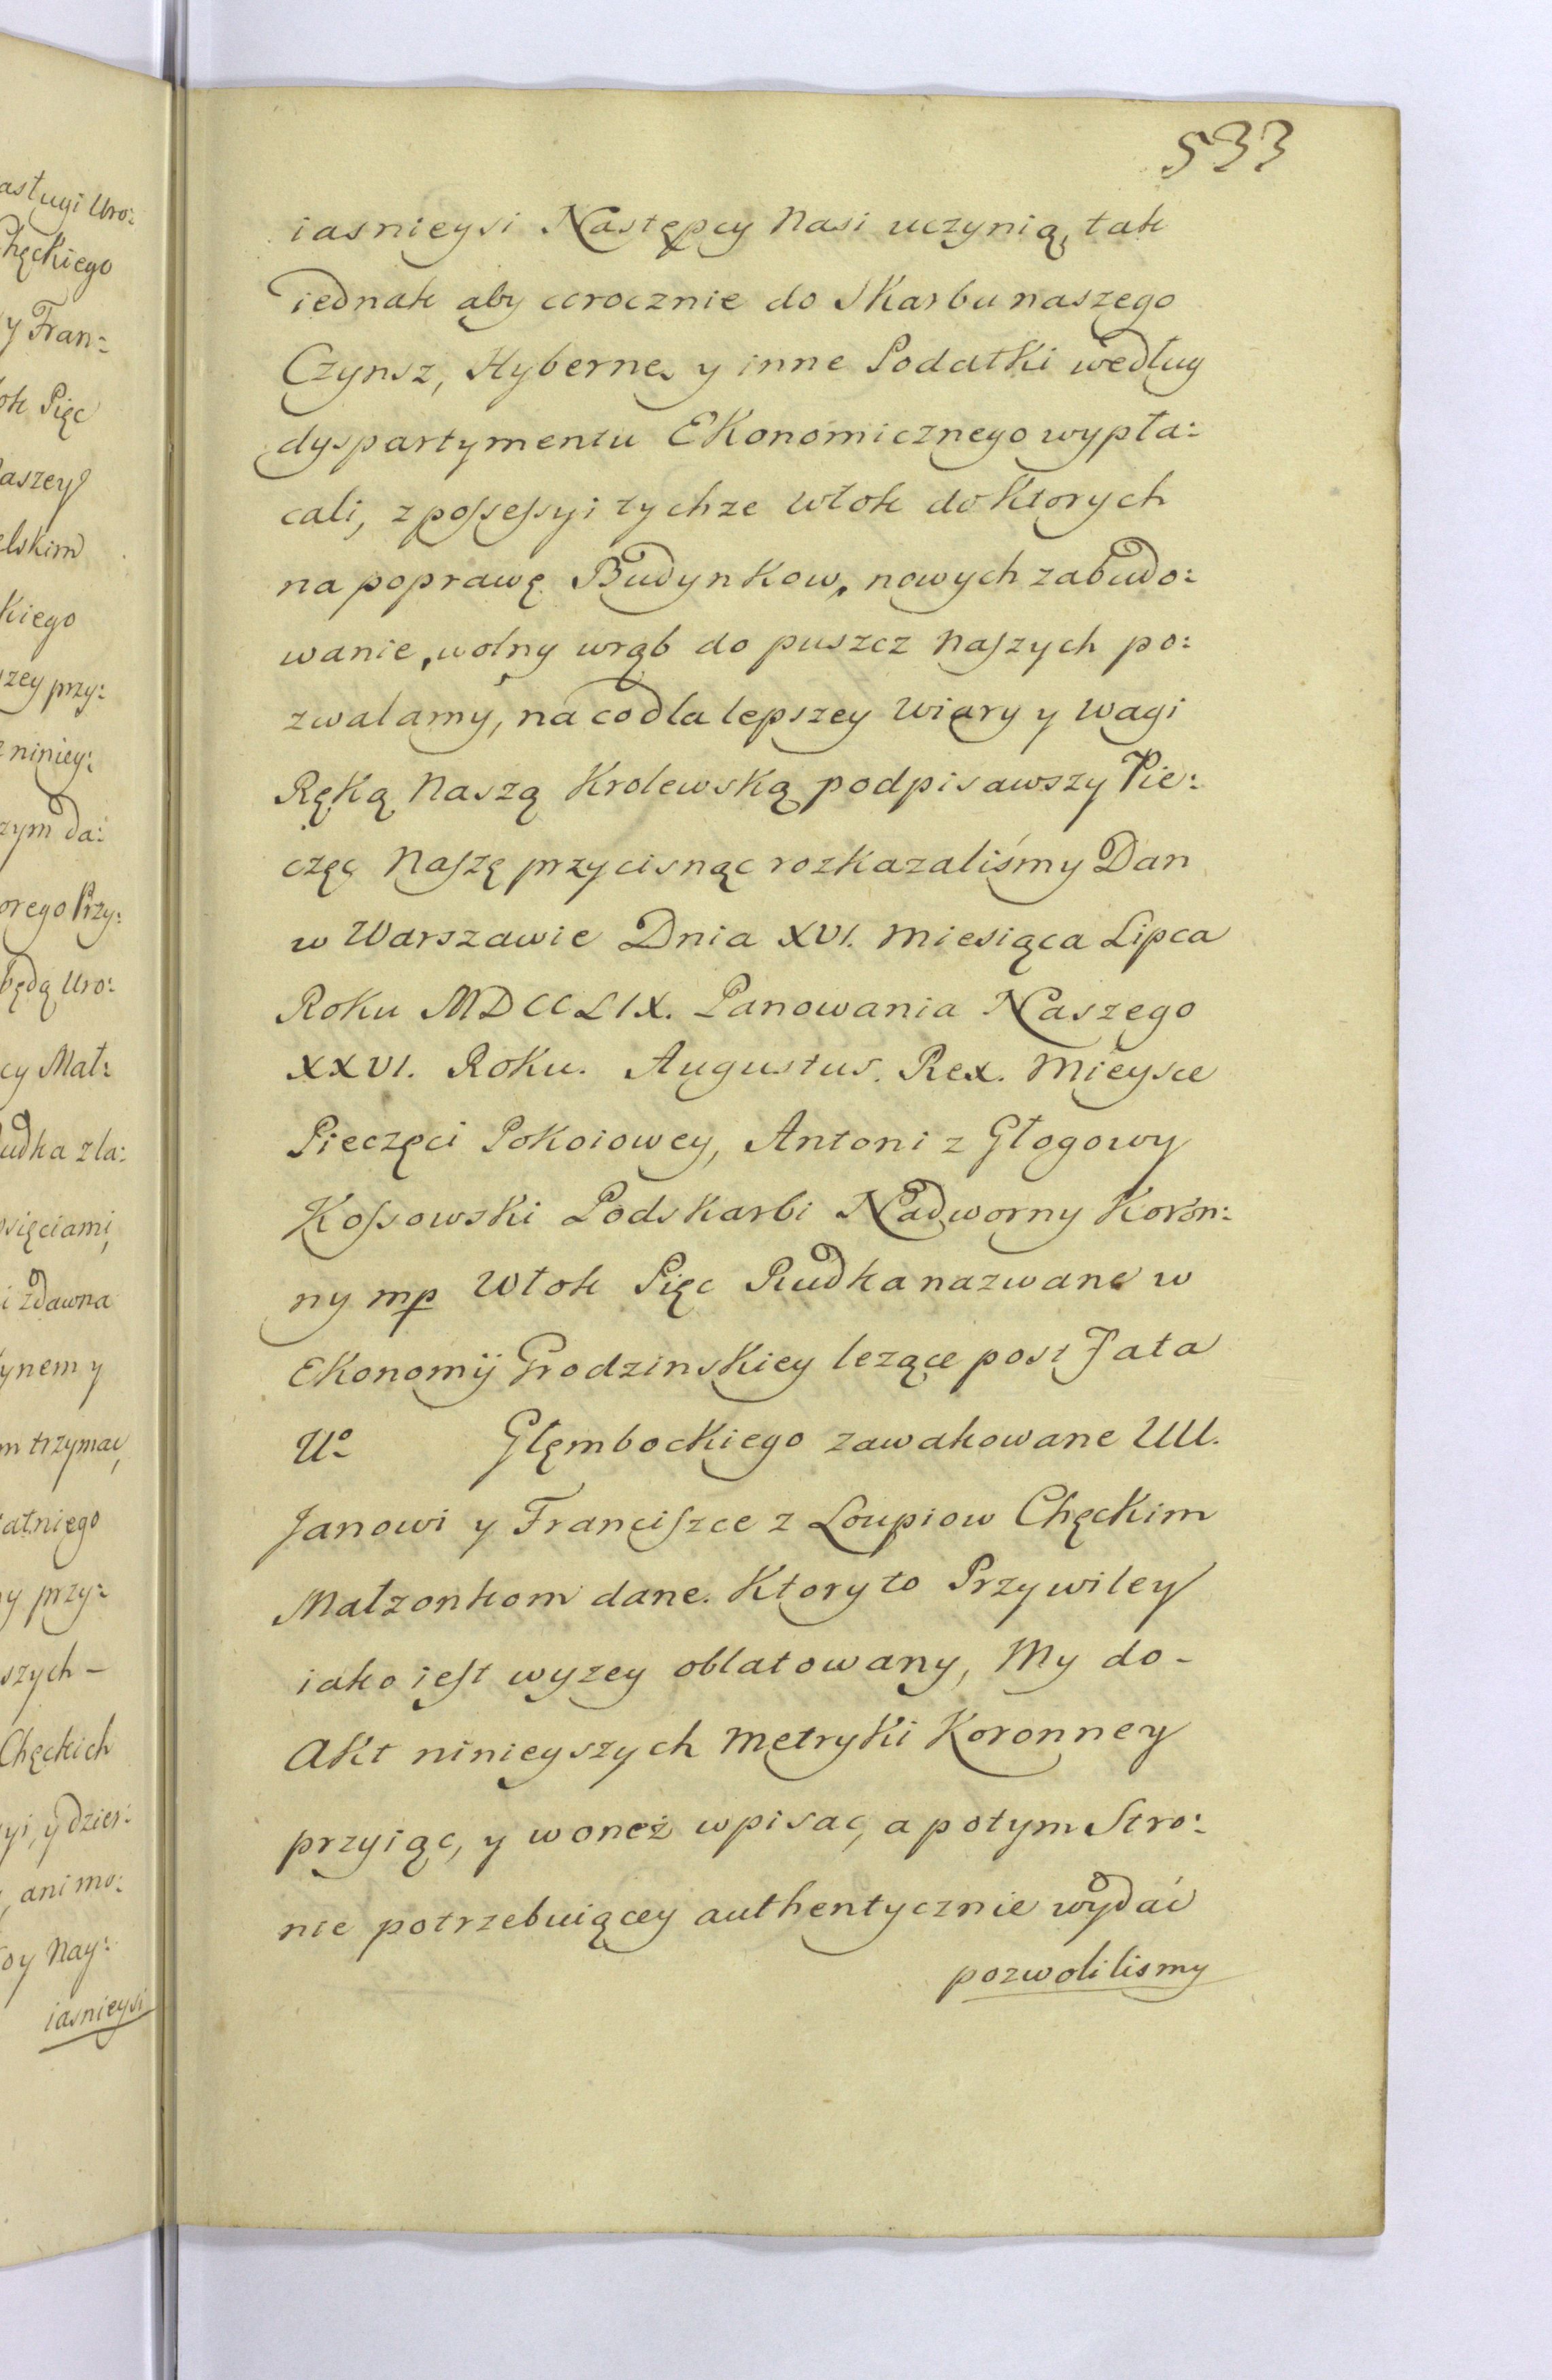 533
iasnieysi Następcy Nasi uczynią, tak
iednak aby corocznie do Skarbu naszego
Czynsz, Hyberne, y inne Podatki według
dyspartymentu Ekonomicznego wypła:
cali, z possessyi tychze Włok do Ktorych
na poprawę Budynkow, nowych zabudo:
wanie, wolny wrąb do puszcz Naszych po:
zwalamy, na co dla lepszey Wiary y Wagi
Ręką Naszą Krolewską podpisawszy Pie:
częc Naszę przycisnąc rozkazaliśmy Dan
w Warszawie Dnia XVI. Miesiąca Lipca
Roku MDCCLIX. Panowania Naszego
XXVI. Roku. Augustus. Rex. Mieysce
Pieczęci Pokoiowey, Antoni z Głogowy
Kossowski Podskarbi Nadworny Koron:
ny mp Włok Pięc Rudka nazwane w
Ekonomij Grodzinskiey lezące post Fata
Uo Głęmbockiego zawakowane UU.
Janowi y Franciszce z Loupiow Chęckim
Małzonkom dane. Ktory to Przywiley
iako iest wyzey oblatowany, My do-
Akt ninieyszych Metryki Koronney
przyiąc, y w oneż wpisac, a potym Stro:
nie potrzebuiącey authentycznie wydać
pozwolilismy
asługi Uro:
hęckiego
y Fran:
ok Pięc
aszey
elskim
kiego
szey przy:
z niniey:
zym da:
orego Przy:
będą Uro:
cy Mał:
udka z la:
osięciami,
i zdawna
ynem y
m trzymac,
atniego
y przy:
szych -
Chęckich
yi, y dzier:
, ani mo:
oy Nay:
iasnieysi